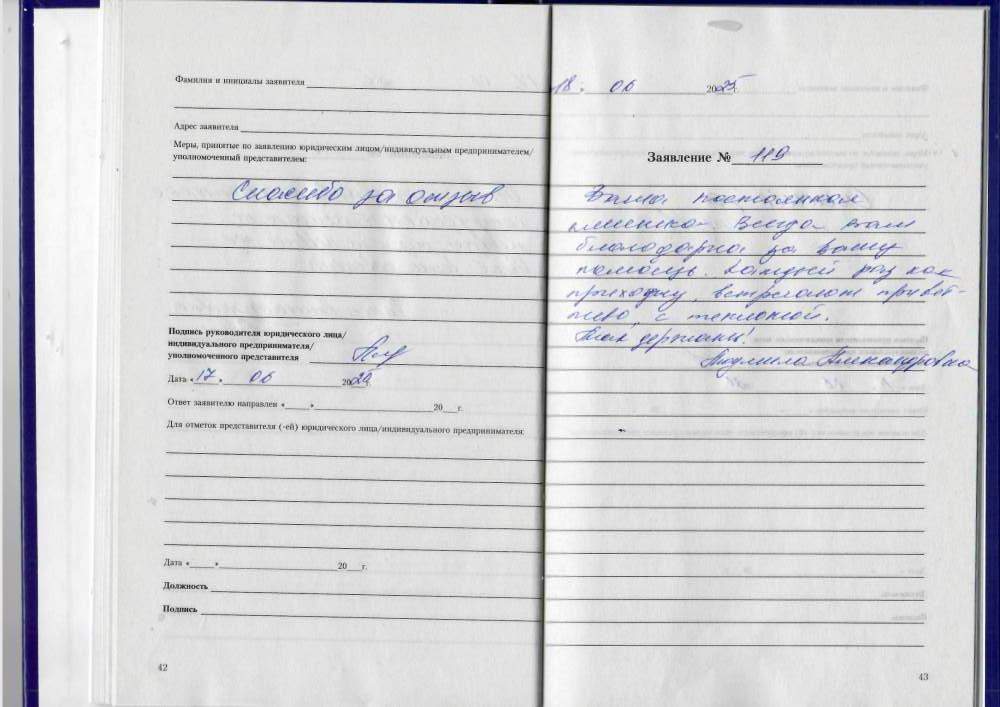 Фамилия и инициалы заявителя
Адрес заявителя
Меры, принятые по заявлению юридическим лицом/индивидуальным предпринимателем/
уполномоченный представителем:
Спасибо за отзыв
Подпись руководителя юридического лица/
индивидуального предпринимателя/
уполномоченного представителя
Дата «17» 06 2025
Ответ заявителю направлен «   »    20   г.
Для отметок представителя (-ей) юридического лица/индивидуального предпринимателя:
Дата «   »    20   г.
Должность
Подпись
42
18. 06 2025г.
Заявление № 119
Ваша постоянная
клиентка. Всегда вам
благодарна за вашу
помощь. Каждый раз как
прихожу, встречают привет-
ливо, с теплотой.
Так держать!
Людмила Александровна
43